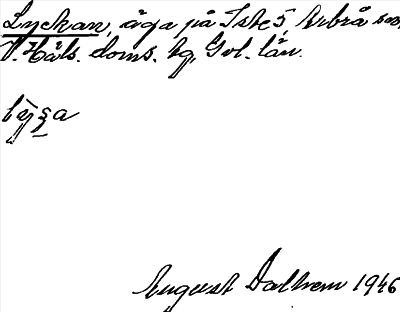 Lyckan, äga på Iste 5, Arbrå sn,
V. Häls. doms. hg, Gvl. län.
August Dalhem 1946